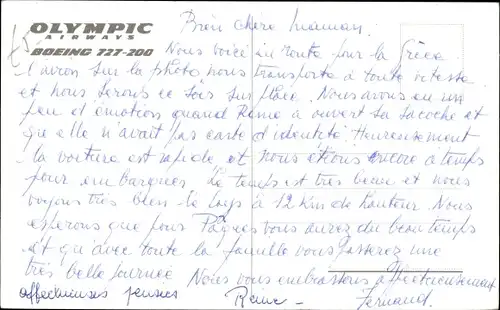 OLYMPIC
AIRWAYS
BOEING 727-200
Bien chère Maman.
Nous voici en route pour la Grèce
l'avion sur la photo nous transporte à toute vitesse
et nous serons ce soir sur place. Nous avons eu un
peu d'émotion quand Reine a ouvert sa sacoche et
que elle n'avait pas carte d'identité. Heureusement
la voiture est rapide et nous étions encore à temps
pour embarquer. Le temps est très beau et nous
voyons très bien le pays à 12 Km de hauteur. Nous
espérons que pour Pâques vous aurez du beau temps
et qu'avec toute la famille vous passerez une
très belle journée. Nous vous embrassons affectueusement
affectueuses pensées Reine - Fernand.